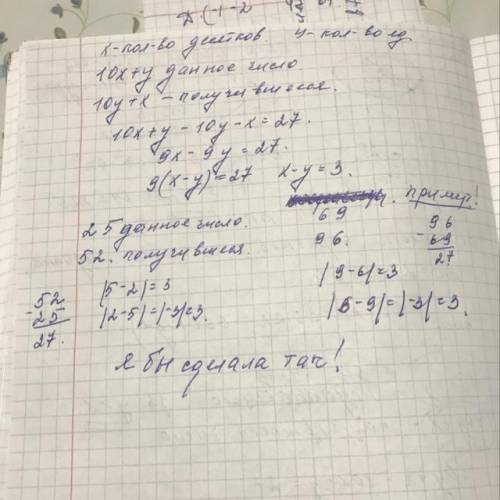 х-кол-во десятков. у-кол-во ед
10х+у данное число
10у+х - получившееся.
10х+у-10у-х=27.
9х-9у=27.
9(х-у)=27 х-у=3.
пример!
69
96.
96
-69
27
25 данное число.
52. получившееся.
|9-6|=3
|6-9|=|-3|=3.
-52
25
27.
|5-2|=3
|2-5|=|-3|=3.
Я бы сделала так!